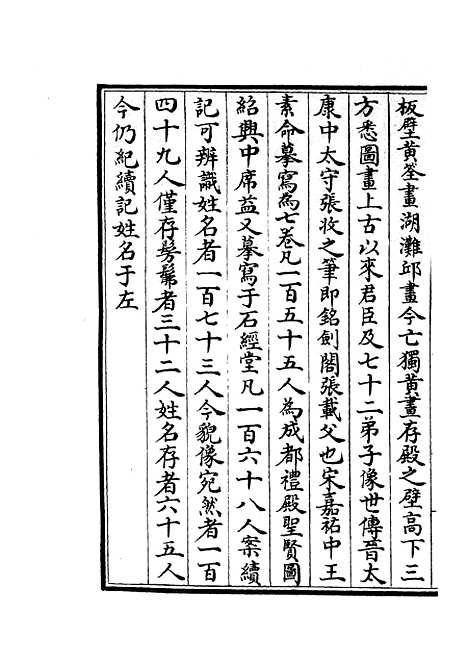 板壁黄筌畫湖灘邱畫今亡獨黄畫存殿之壁高下三
方悉圖畫上古以來君臣及七十二弟子像世傳晉太
康中太守張收之筆即銘劍閣張載父也宋嘉祐中王
素命摹寫為七卷凡一百五十五人為成都禮殿聖賢圖
紹興中席益又摹寫于石經堂凡一百六十八人案續
記可辨識姓名者一百七十三人今貌像宛然者一百
四十九人僅存髣髴者三十二人姓名存者六十五人
今仍紀續記姓名于左